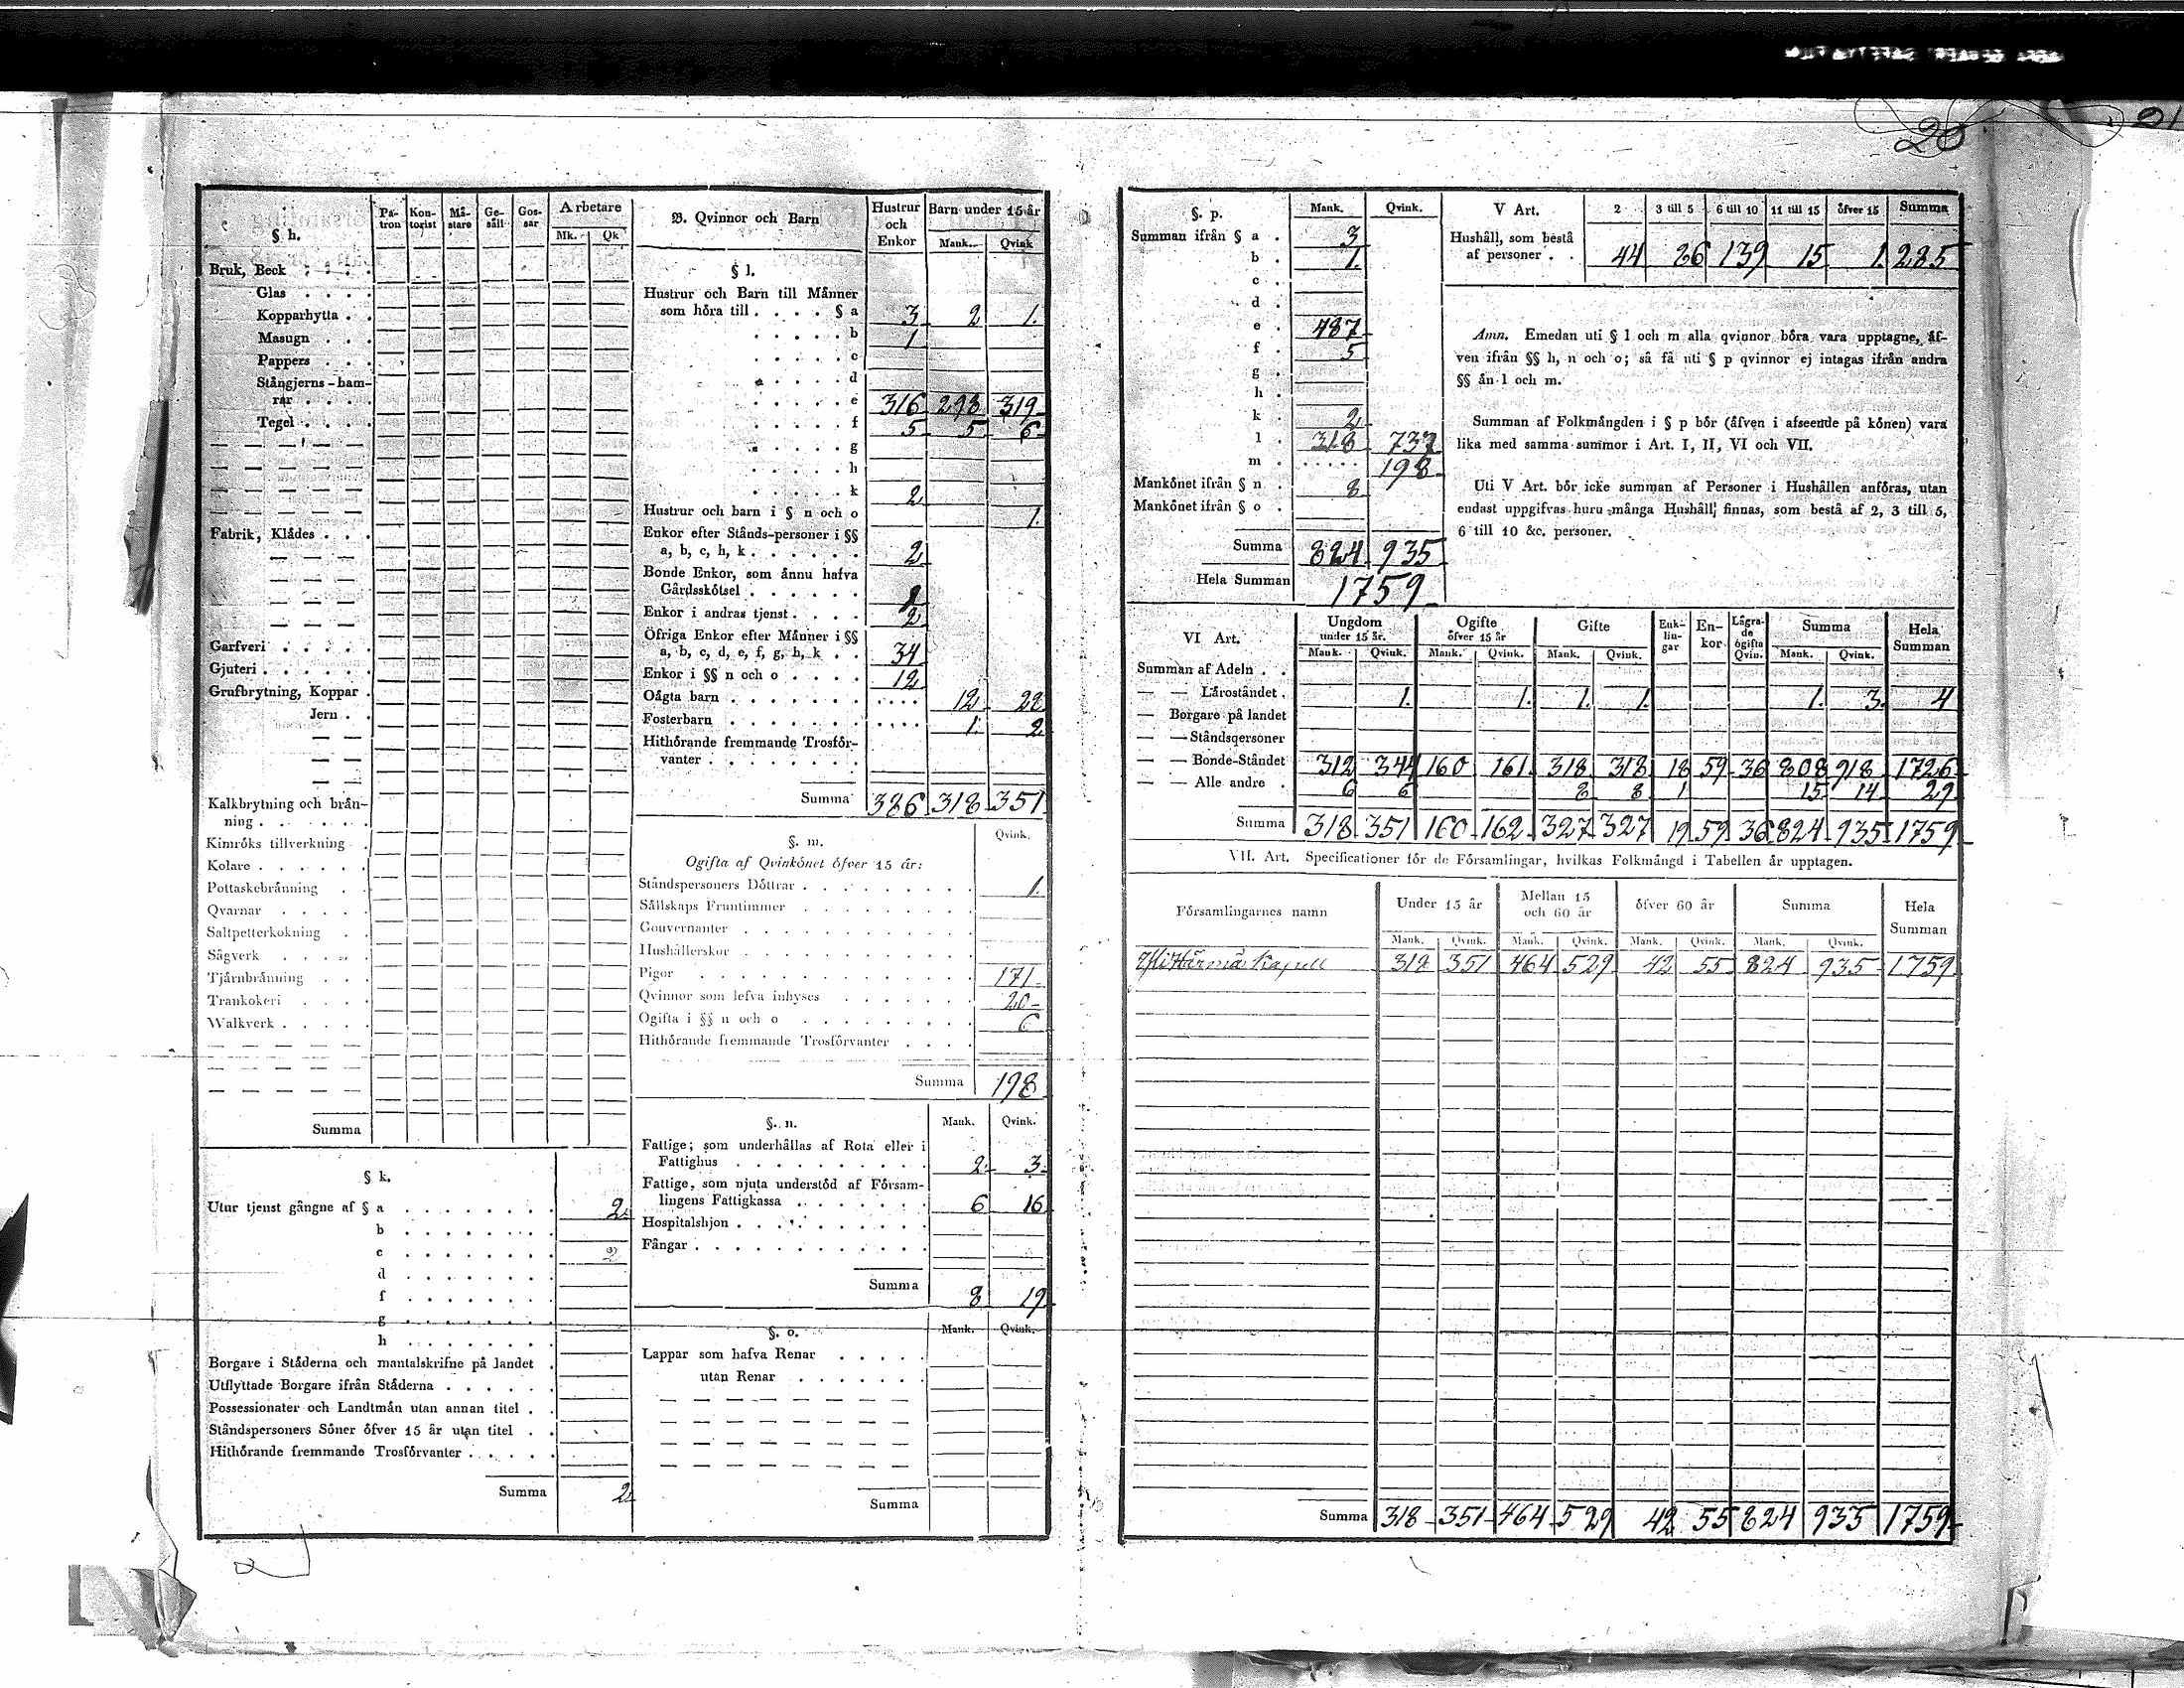 20
21
§ h. Pa- tron Kon- torist Må- stare Ge- såll Gos- sar Arbetare
Mk. Qk
Bruk, Beck . . . .
Glas . . . .
Kopparhytta . .
Masugn . . .
Pappers . . .
Stångjerns-ham-
rar . . . .
Tegel . . . .
Fabrik, Klådes . . .
Garfveri . . . . .
Gjuteri . . . . .
Grufbrytning, Koppar .
Jern . .
Kalkbrytning och brån-
ning . . . . . .
Kimróks tillverkning .
Kolare . . . . . .
Pottaskebrånning . .
Qvarnar . . . . .
Saltpetterkokning . .
Sågverk . . . . .
Tjårnbrånning . . .
Trankokeri . . . .
Walkverk . . . . .
Summa
§ k.
Utur tjenst gångne af § a . . . . . . . . 2
b . . . . . . . .
c . . . . . . . . 2
d . . . . . . . .
f . . . . . . . .
g . . . . . . . .
h . . . . . . . .
Borgare i Ståderna och mantalskrifne på landet .
Utflyttade Borgare ifrån Ståderna . . . . . .
Possessionater och Landtmån utan annan titel . .
Ståndspersoners Sóner ófver 15 år utan titel . .
Hithórande fremmande Trosfórvanter . . . . .
Summa 2
B. Qvinnor och Barn Hustrur och Enkor Barn under 15 år
Mank. Qvink
§ l.
Hustrur och Barn till Månner
som hóra till . . . . § a 3 2 1.
. . . . . b 1
. . . . . c
. . . . . d
. . . . . e 316 298 319
. . . . . f 5 5 6
. . . . . g
. . . . . h
. . . . . k 2
Hustrur och barn i § n och o 1.
Enkor efter Stånds-personer i §§
a, b, c, h, k . . . . . . 2
Bonde Enkor, som ånnu hafva
Gårdsskótsel . . . . . .
Enkor i andras tjenst . . . . 2
Öfriga Enkor efter Månner i §§
a, b, c, d, e, f, g, h, k . . 34
Enkor i §§ n och o . . . . 12
Oågta barn . . . . . . . .... 12 22
Fosterbarn . . . . . . . .... 1. 2
Hithórande fremmande Trosfór-
vanter . . . . . . .
Summa 386 318 351
§. m. Qvink.
Ogifta af Qvinkónet ófver 15 år:
Ståndspersoners Dóttrar . . . . . . . . 1.
Sållskaps Fruntimmer . . . . . . . .
Gouvernanter . . . . . . . . . . .
Hushållerskor . . . . . . . . . . .
Pigor . . . . . . . . . . . . 171
Qvinnor som lefva inhyses . . . . . . 20
Ogifta i §§ n och o . . . . . . . . 6
Hithórande fremmande Trosfórvanter . . . .
Summa 198
§. n. Mank. Qvink.
Fattige; som underhållas af Rota eller i
Fattighus . . . . . . . . . . 2. 3.
Fattige, som njuta understód af Fórsam-
lingens Fattigkassa . . . . . . . 6 16
Hospitalshjon . . . . . . . . . .
Fångar . . . . . . . . . . . .
Summa 8 19
§. o. Mank. Qvink.
Lappar som hafva Renar . . . .
utan Renar . . . . . . .
Summa
§. p. Mank. Qvink.
Summan ifrån § a . 3
b . 1.
c .
d .
e . 487
f . 5
g .
h .
k . 2
l . 318 737
m . ...... 198
Mankónet ifrån § n . 8
Mankónet ifrån § o .
Summa 824 935
Hela Summan 1759
V Art. 2 3 till 5 6 till 10 11 till 15 ófver 15 Summa
Hushåll, som bestå
af personer . . 44 86 139 15 1. 285
Amn. Emedan uti § l och m alla qvinnor bóra vara upptagne, åf-
ven ifrån §§ h, n och o; så få uti § p qvinnor ej intagas ifrån andra
§§ ån l och m.
Summan af Folkmångden i § p bór (åfven i afseende på kónen) vara
lika med samma summor i Art. I, II, VI och VII.
Uti V Art. bór icke summan af Personer i Hushållen anfóras, utan
endast uppgifvas huru många Hushåll finnas, som bestå af 2, 3 till 5,
6 till 10 &c. personer.
VI Art. Ungdom under 15 år. Ogifte ófver 15 år Gifte Enk- lin- gar En- kor Lågra- de ógifta Qvin. Summa Hela Summan
Mank. Qvink. Mank. Qvink. Mank. Qvink. Mank. Qvink.
Summan af Adeln . .
— — Låroståndet . 1. 1. 1. 1. 1. 3. 4
— Borgare på landet
— — Ståndspersoner
— — Bonde-Ståndet 312 344 160 161 318 318 18 59 36 808 918 1726
— — Alle andre . 6 6 8 8 1 15 14 29
Summa 318 351 160 162 327 327 19 59 36 824 935 1759
VII. Art. Specificationer fór de Fórsamlingar, hvilkas Folkmångd i Tabellen år upptagen.
Fórsamlingarnes namn Under 15 år Mellan 15 och 60 år ófver 60 år Summa Hela Summan
Mank. Qvink. Mank. Qvink. Mank. Qvink. Mank. Qvink.
Kapell 318 351 464 529 42 55 824 935 1759
Summa 318 351 464 529 42 55 824 935 1759